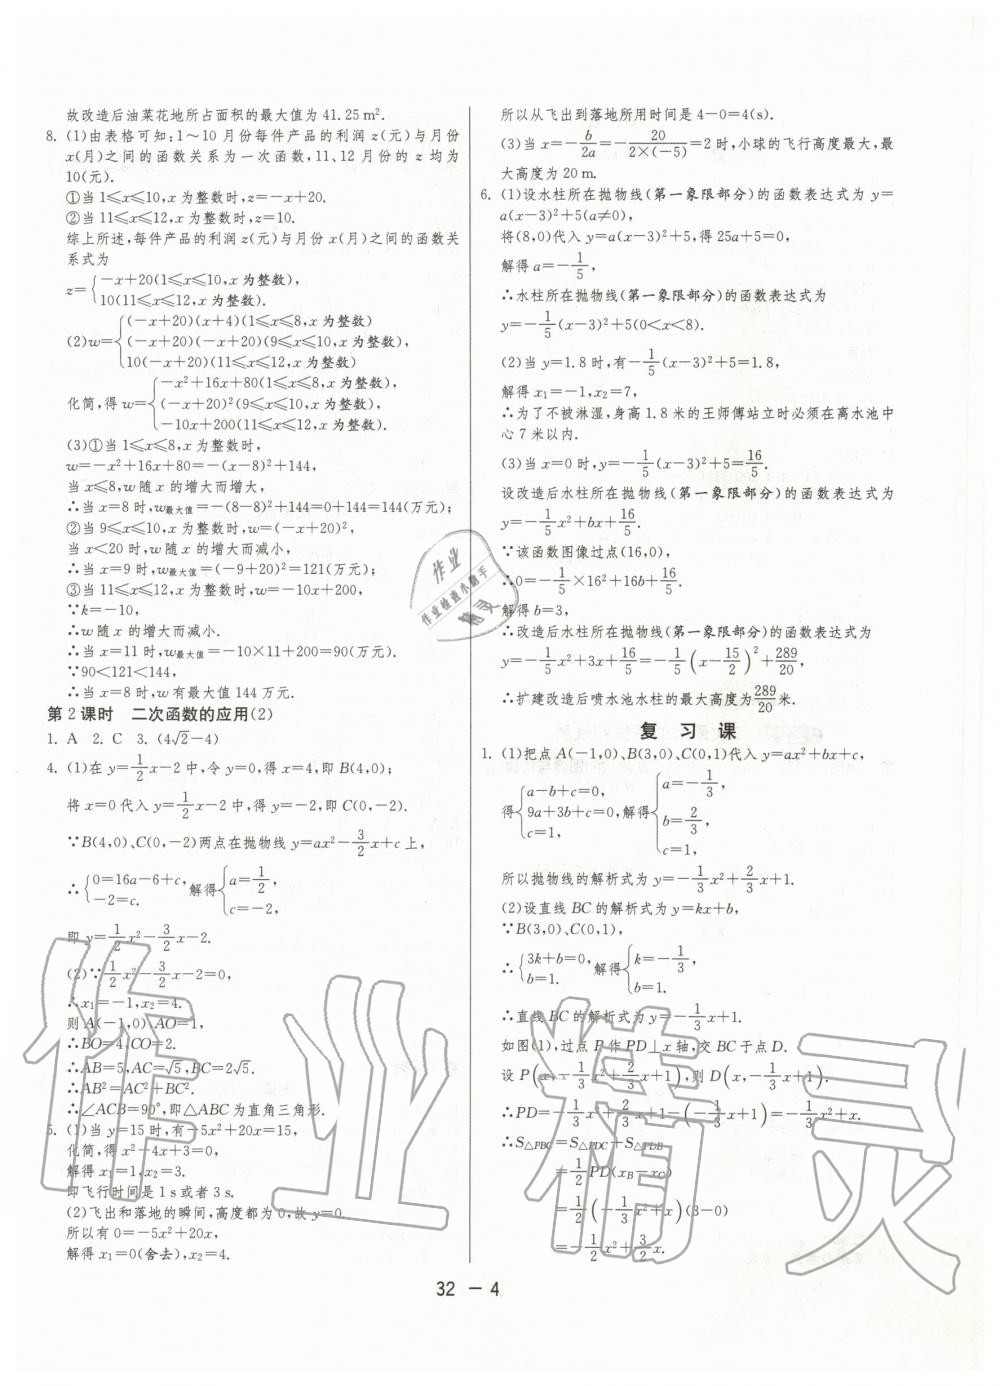 故改造后油菜花地所占面积的最大值为 41.25 m².
8. (1)由表格可知:1～10 月份每件产品的利润 z(元)与月份
x(月)之间的函数关系为一次函数,11、12 月份的 z 均为
10(元).
①当 1≤x≤10,x 为整数时,z=-x+20.
②当 11≤x≤12,x 为整数时,z=10.
综上所述,每件产品的利润 z(元)与月份 x(月)之间的函数关
系式为
z={-x+20(1≤x≤10,x 为整数),
10(11≤x≤12,x 为整数).
(2)w={(-x+20)(x+4)(1≤x≤8,x 为整数)
(-x+20)(-x+20)(9≤x≤10,x 为整数)
10(-x+20)(11≤x≤12,x 为整数)
化简,得 w={-x²+16x+80(1≤x≤8,x 为整数),
(-x+20)²(9≤x≤10,x 为整数),
-10x+200(11≤x≤12,x 为整数).
(3)①当 1≤x≤8,x 为整数时,
w=-x²+16x+80=-(x-8)²+144,
当 x≤8,w 随 x 的增大而增大,
∴当 x=8 时,w最大值=-(8-8)²+144=0+144=144(万元);
②当 9≤x≤10,x 为整数时,w=(-x+20)²,
当 x<20 时,w 随 x 的增大而减小,
∴当 x=9 时,w最大值=(-9+20)²=121(万元);
③当 11≤x≤12,x 为整数时,w=-10x+200,
∵k=-10,
∴w 随 x 的增大而减小.
∴当 x=11 时,w最大值=-10×11+200=90(万元).
∵90<121<144,
∴当 x=8 时,w 有最大值 144 万元.
第 2 课时 二次函数的应用(2)
1. A 2. C 3. (4√2-4)
4. (1)在 y=1/2x-2 中,令 y=0,得 x=4,即 B(4,0);
将 x=0 代入 y=1/2x-2 中,得 y=-2,即 C(0,-2).
∵B(4,0)、C(0,-2)两点在抛物线 y=ax²-3/2x+c 上,
∴{0=16a-6+c, 解得{a=1/2,
-2=c. c=-2,
即 y=1/2x²-3/2x-2.
(2)∵1/2x²-3/2x-2=0,
∴x₁=-1,x₂=4.
则 A(-1,0) AO=1,
∴BO=4,CO=2.
∴AB=5,AC=√5,BC=2√5.
∴AB²=AC²+BC².
∴∠ACB=90°,即△ABC 为直角三角形.
5. (1)当 y=15 时,有-5x²+20x=15,
化简,得 x²-4x+3=0,
解得 x₁=1,x₂=3.
即飞行时间是 1 s 或者 3 s.
(2)飞出和落地的瞬间,高度都为 0,故 y=0
所以有 0=-5x²+20x,
解得 x₁=0(舍去),
所以从飞出到落地所用时间是 4-0=4(s).
(3)当 x=-b/2a=-20/(2×(-5))=2 时,小球的飞行高度最大,最
大高度为 20 m.
6. (1)设水柱所在抛物线(第一象限部分)的函数表达式为 y=
a(x-3)²+5(a≠0),
将(8,0)代入 y=a(x-3)²+5,得 25a+5=0,
解得 a=-1/5,
∴水柱所在抛物线(第一象限部分)的函数表达式为
y=-1/5(x-3)²+5(0<x<8).
(2)当 y=1.8 时,有-1/5(x-3)²+5=1.8,
解得 x₁=-1,x₂=7,
∴为了不被淋湿,身高 1.8 米的王师傅站立时必须在离水池中
心 7 米以内.
(3)当 x=0 时,y=-1/5(x-3)²+5=16/5.
设改造后水柱所在抛物线(第一象限部分)的函数表达式为
y=-1/5x²+bx+16/5.
∵该函数图像过点(16,0),
∴0=-1/5×16²+16b+16/5,
解得 b=3,
∴改造后水柱所在抛物线(第一象限部分)的函数表达式为
y=-1/5x²+3x+16/5=-1/5(x-15/2)²+289/20,
∴扩建改造后喷水池水柱的最大高度为289/20米.
复 习 课
1. (1)把点 A(-1,0)、B(3,0)、C(0,1)代入 y=ax²+bx+c,
得{a-b+c=0, 解得{a=-1/3,
9a+3b+c=0, b=2/3,
c=1, c=1,
所以抛物线的解析式为 y=-1/3x²+2/3x+1.
(2)设直线 BC 的解析式为 y=kx+b,
∵B(3,0)、C(0,1),
∴{3k+b=0, 解得{k=-1/3,
b=1. b=1.
∴直线 BC 的解析式为 y=-1/3x+1.
如图(1),过点 P 作 PD⊥x 轴,交 BC 于点 D.
设 P(x,-1/3x²+2/3x+1),则 D(x,-1/3x+1).
∴PD=-1/3x²+2/3x+1-(-1/3x+1)=-1/3x²+x.
∴S△PBC=S△PDC+S△PDB
=1/2PD(xB-xC)
=1/2(-1/3x²+x)(3-0)
=-1/2x²+3/2x.
32 － 4
作业
作业检查小助手
精灵
作业精灵